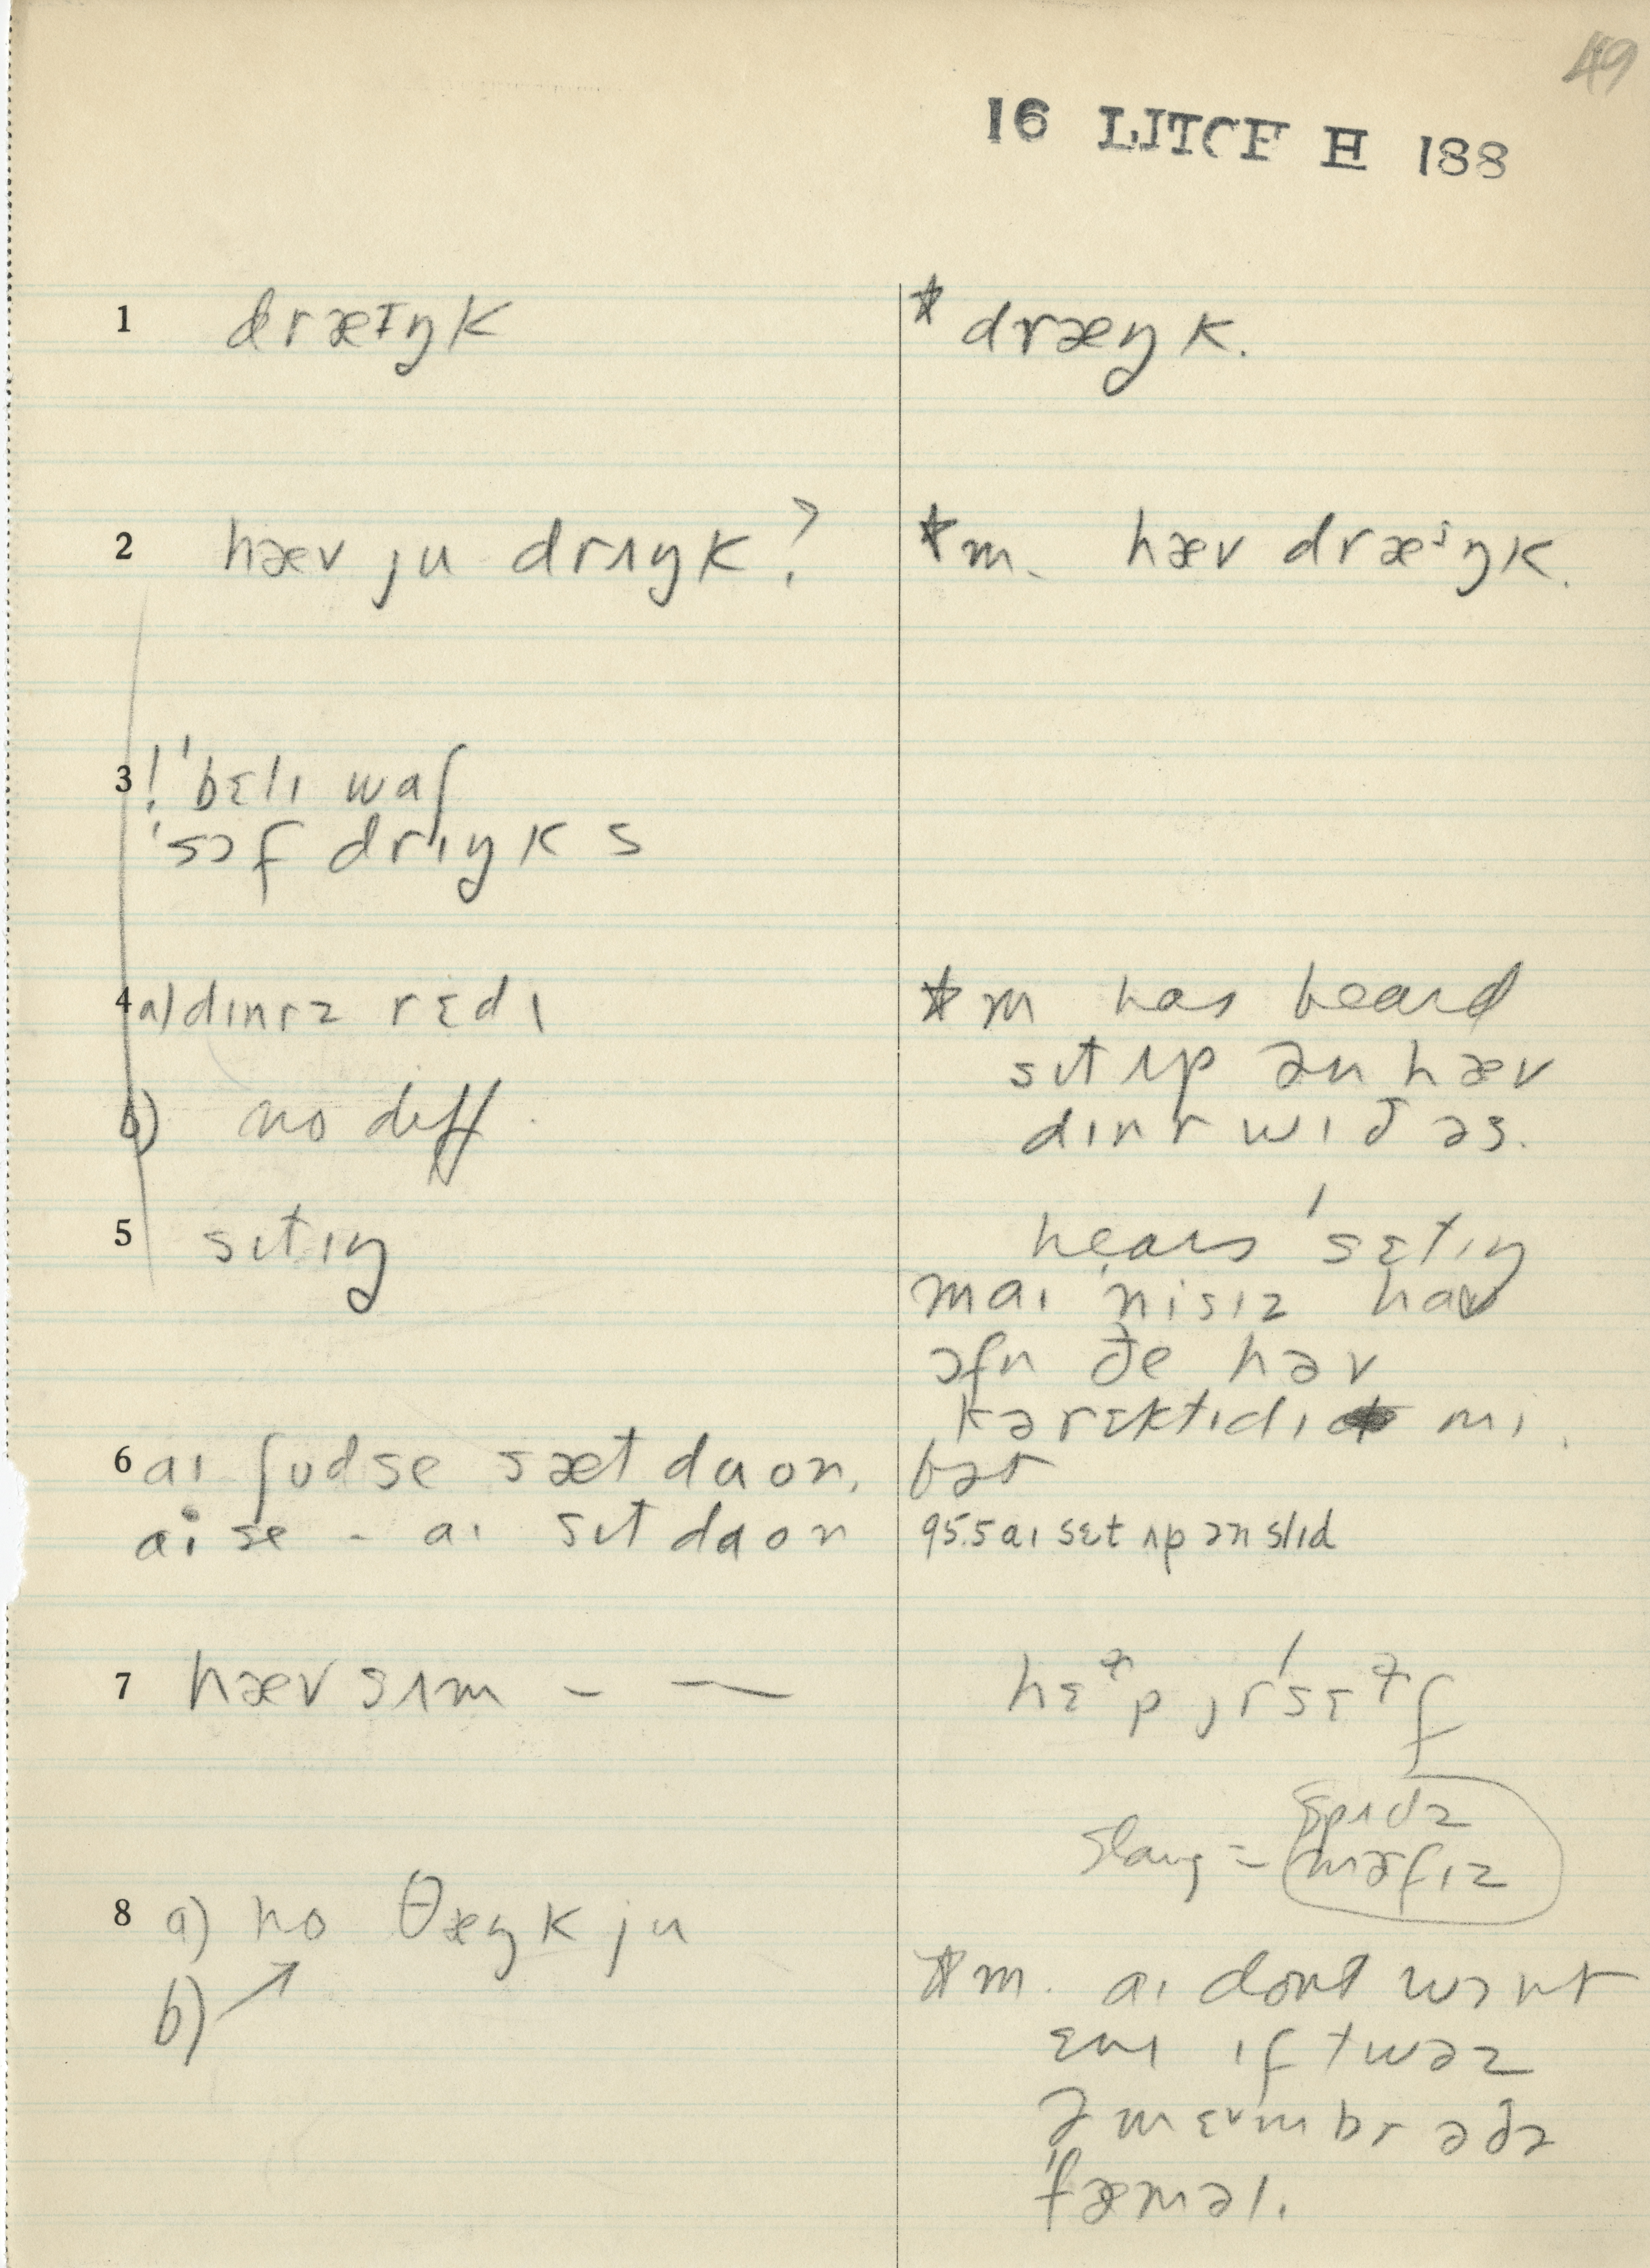 49
16 LITCF H 188
1 dræɪŋk
* dræŋk.
2 hæv ju drʌŋk?
*m. hæv dræᶦŋk.
3 ! ˈbɛlɪ waʃ
ˈsɔf drɪŋks
4 a) dɪnrz rɛdɪ
*m has heard
sɪt ʌp ən hæv
dɪnr wɪð əs.
b) no diff.
5 sɪtɪŋ
hears ˈsɛtɪŋ
maɪ ˈnisɪz hav
ɔfn ðe həv
kərɛktɪdɪ mɪ
bət
6 aɪ ʃudse sæt daon,
aɪ se - aɪ sɪt daon
95.5 aɪ sɛt ʌp ən slɪd
7 hæv sʌm — —
hɛᵊp jrˈsɛᵊf
Slang = spʌdz
məfɪz
8 a) no θæŋk ju
b) ↗
*m. aɪ dont wɔnt
ɛnɪ ɪf twəz
ə mɛᵛmbr əðə
ˈfæməl.